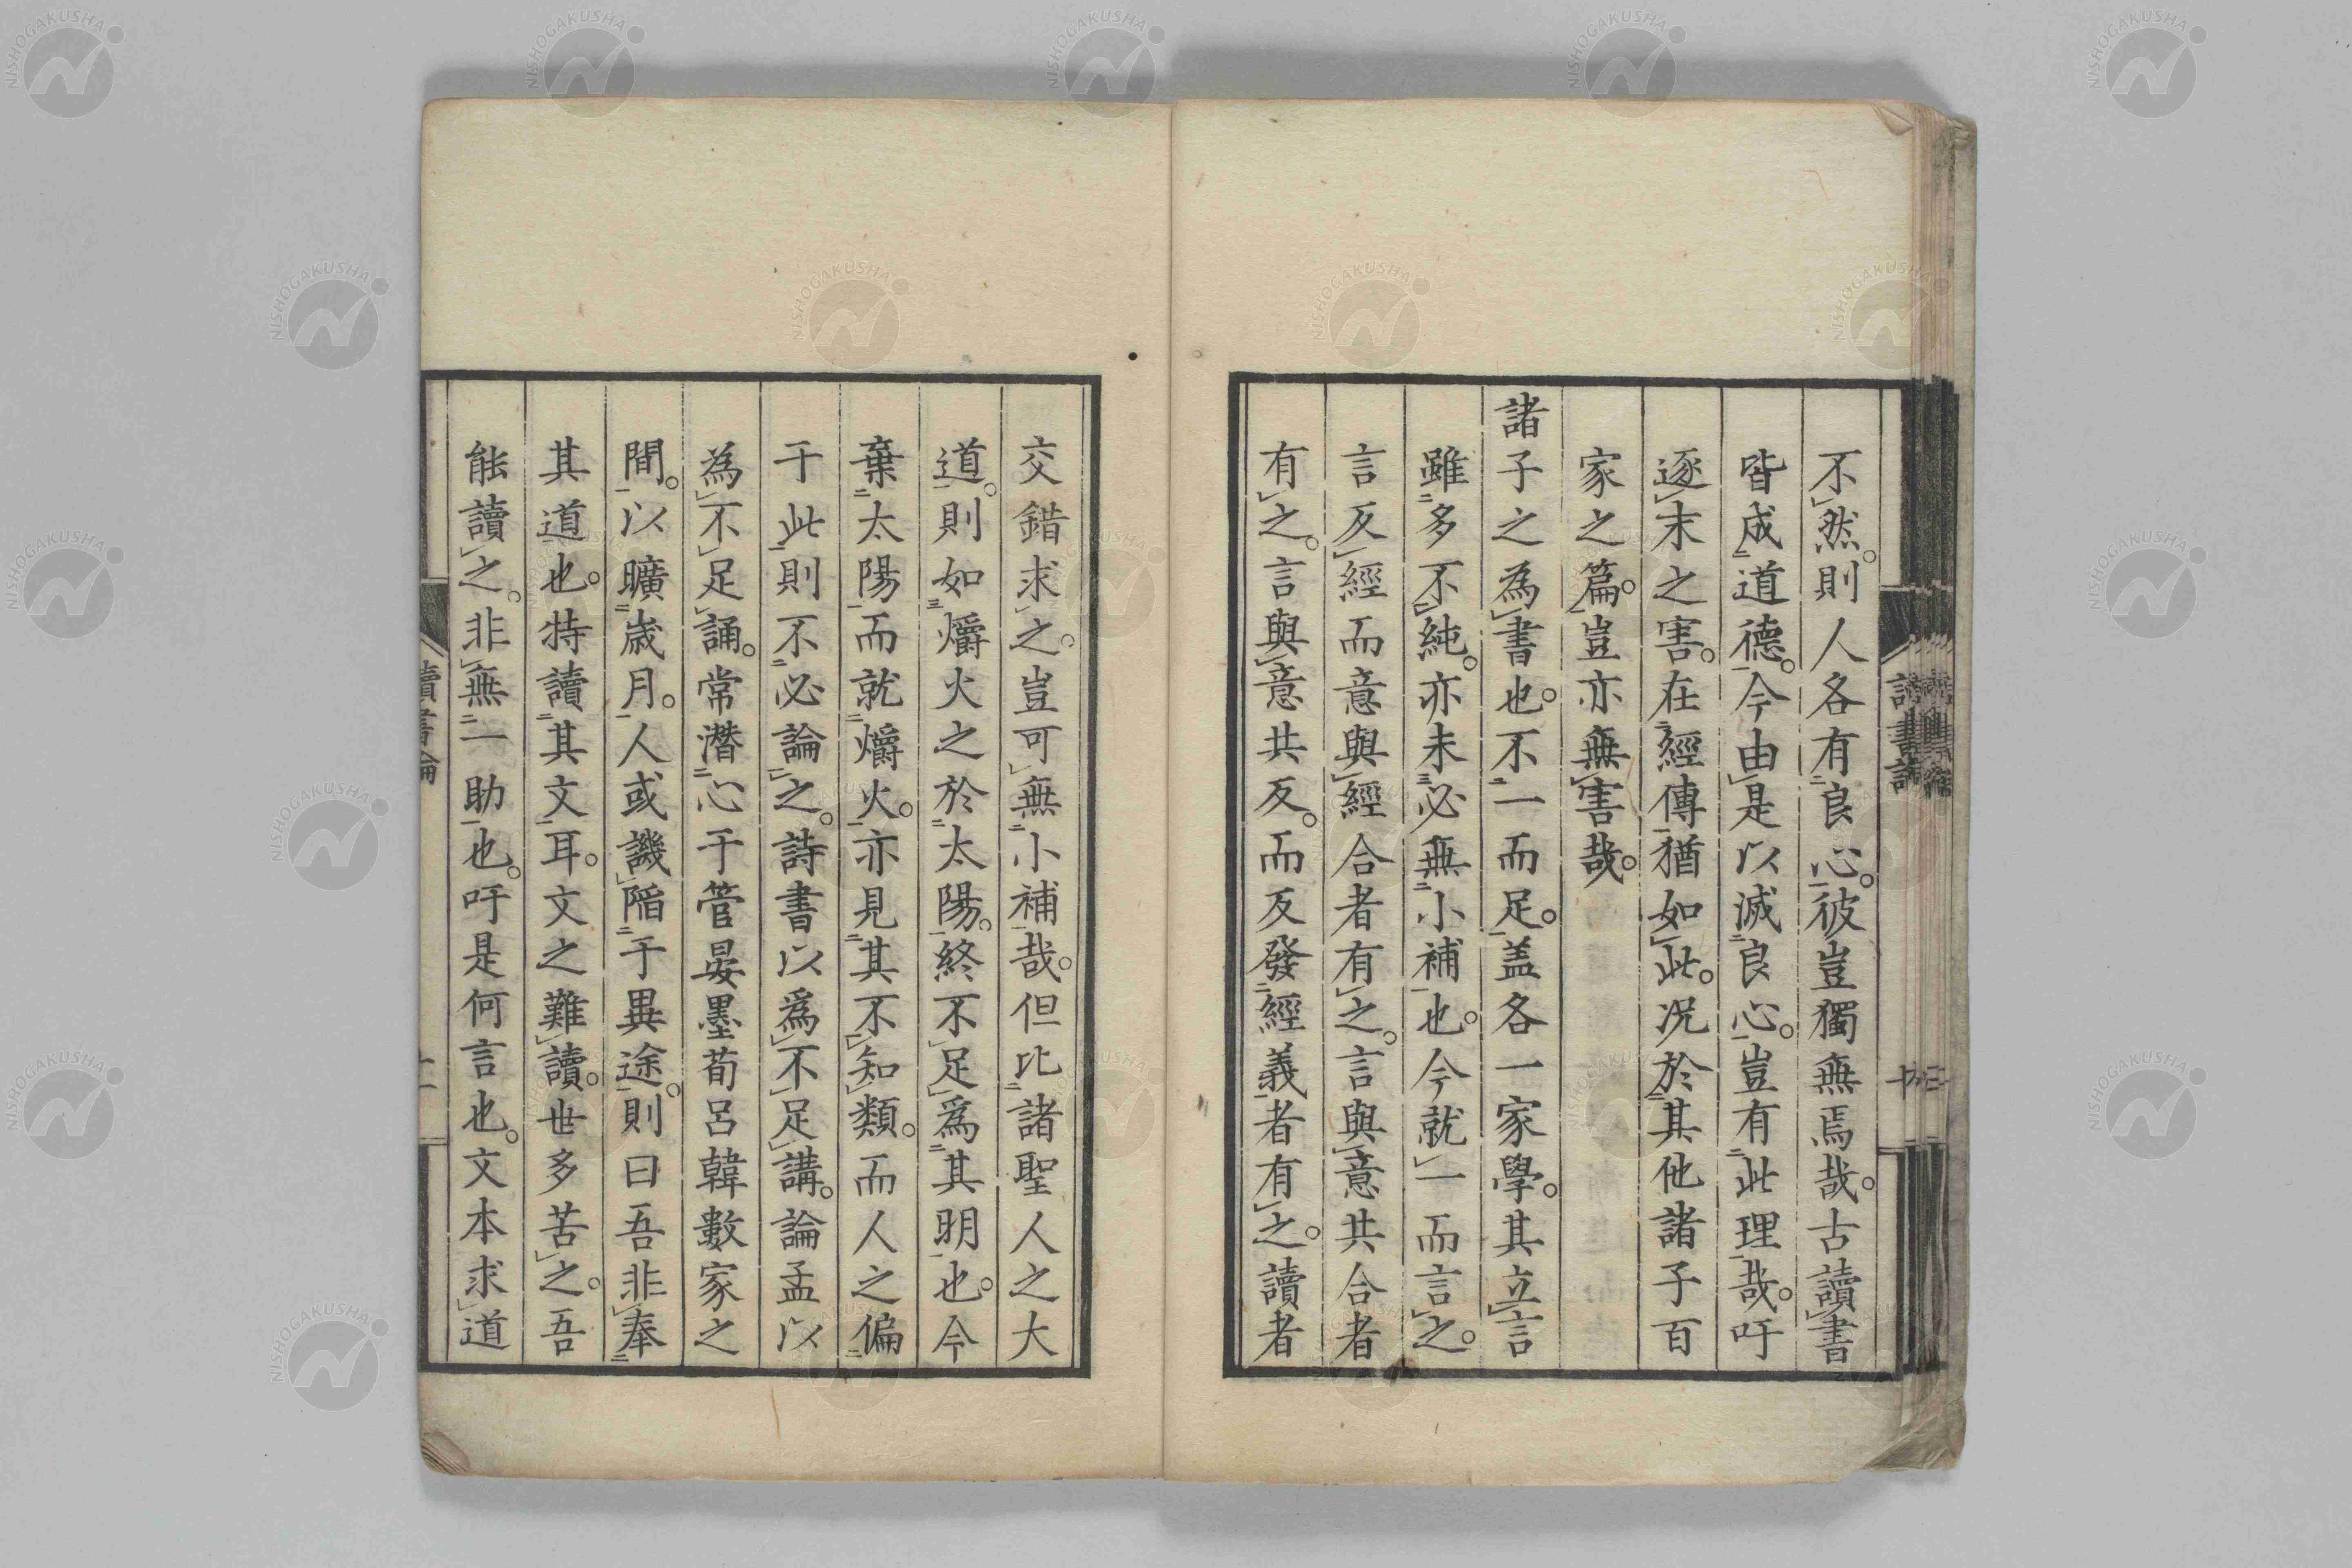 不然。則人各有良心。彼豈獨無焉哉。古讀書
皆成道德。今由是以滅良心。豈有此理哉。吁
逐末之害。在經傳猶如此。況於其他諸子百
家之篇。豈亦無害哉。
諸子之為書也。不一而足。蓋各一家學。其立言
雖多不純。亦未必無小補也。今就一而言之。
言反經而意與經合者有之。言與意共合者
有之。言與意共反。而反發經義者有之。讀者
交錯求之。豈可無小補哉。但比諸聖人之大
道。則如爝火之於太陽。終不足為其明也。今
棄太陽而就爝火。亦見其不知類。而人之偏
于此則不必論之。詩書以爲不足講。論孟以
為不足誦。常潛心于管晏墨荀呂韓數家之
間。以曠歲月。人或譏陷于異途。則曰吾非奉
其道也。特讀其文耳。文之難讀。世多苦之。吾
能讀之。非無一助也。吁是何言也。文本求道
讀書論
十一
NISHOGAKUSHA